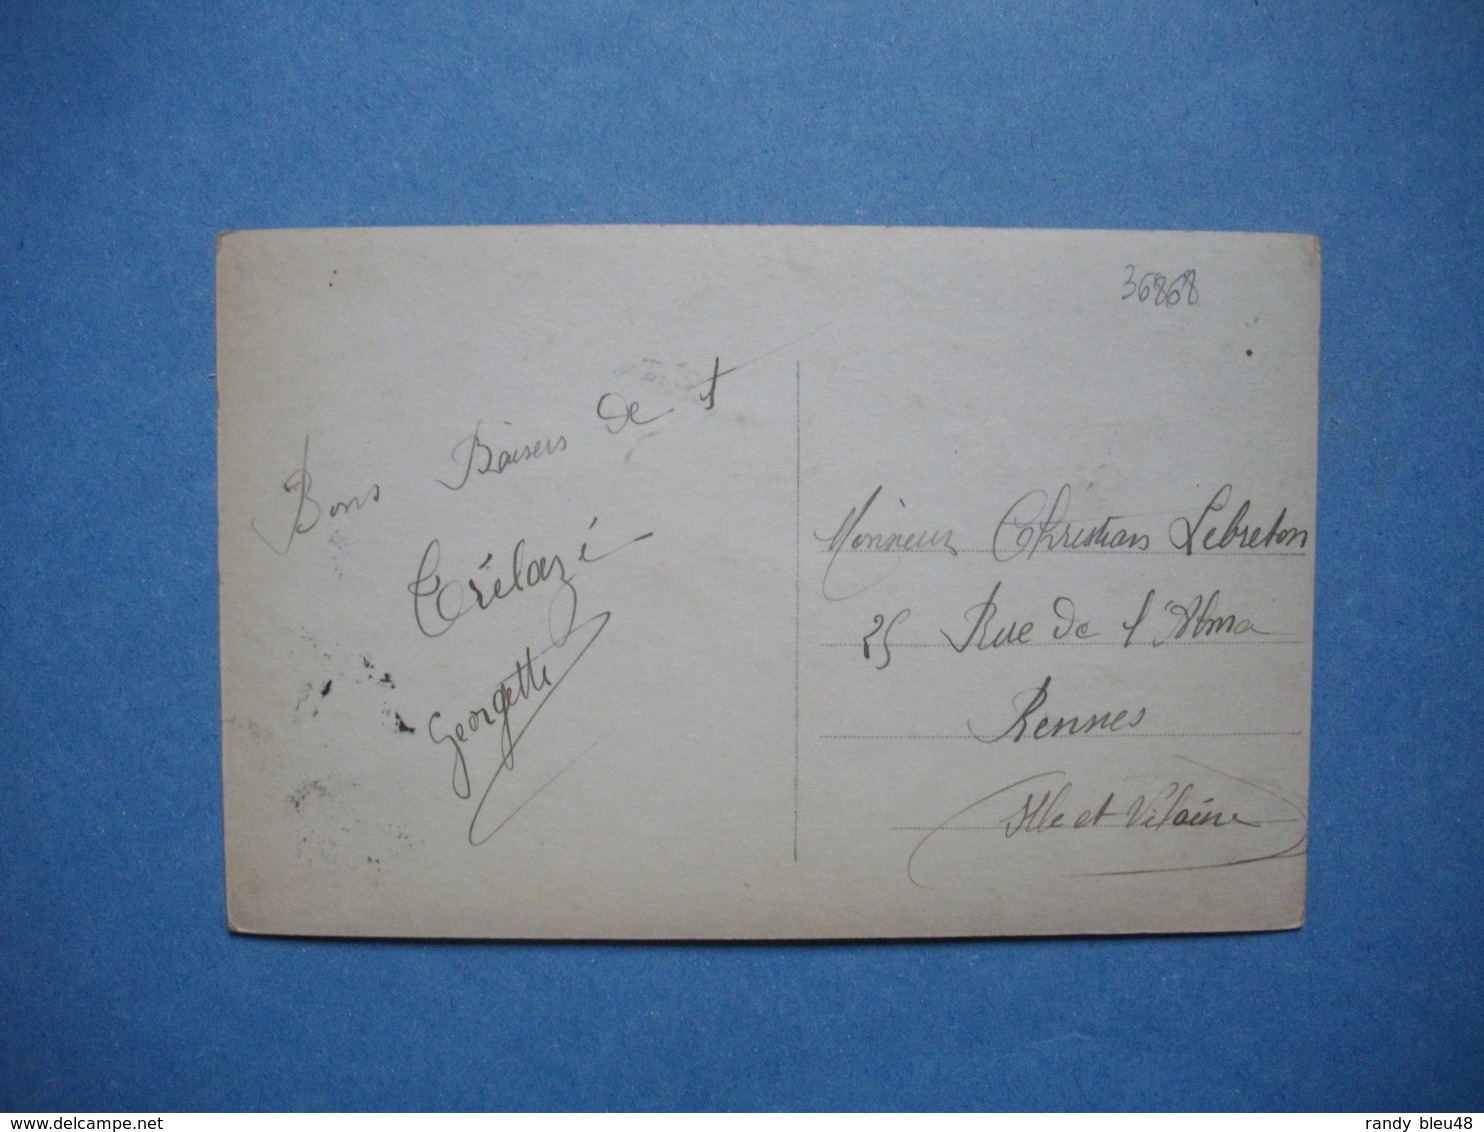 36868
Bons Baisers de
Trélazé
Georgette
Monsieur Christian Lebreton
25 Rue de l'Alma
Rennes
Ille et Vilaine
delcampe.net
randy_bleu48